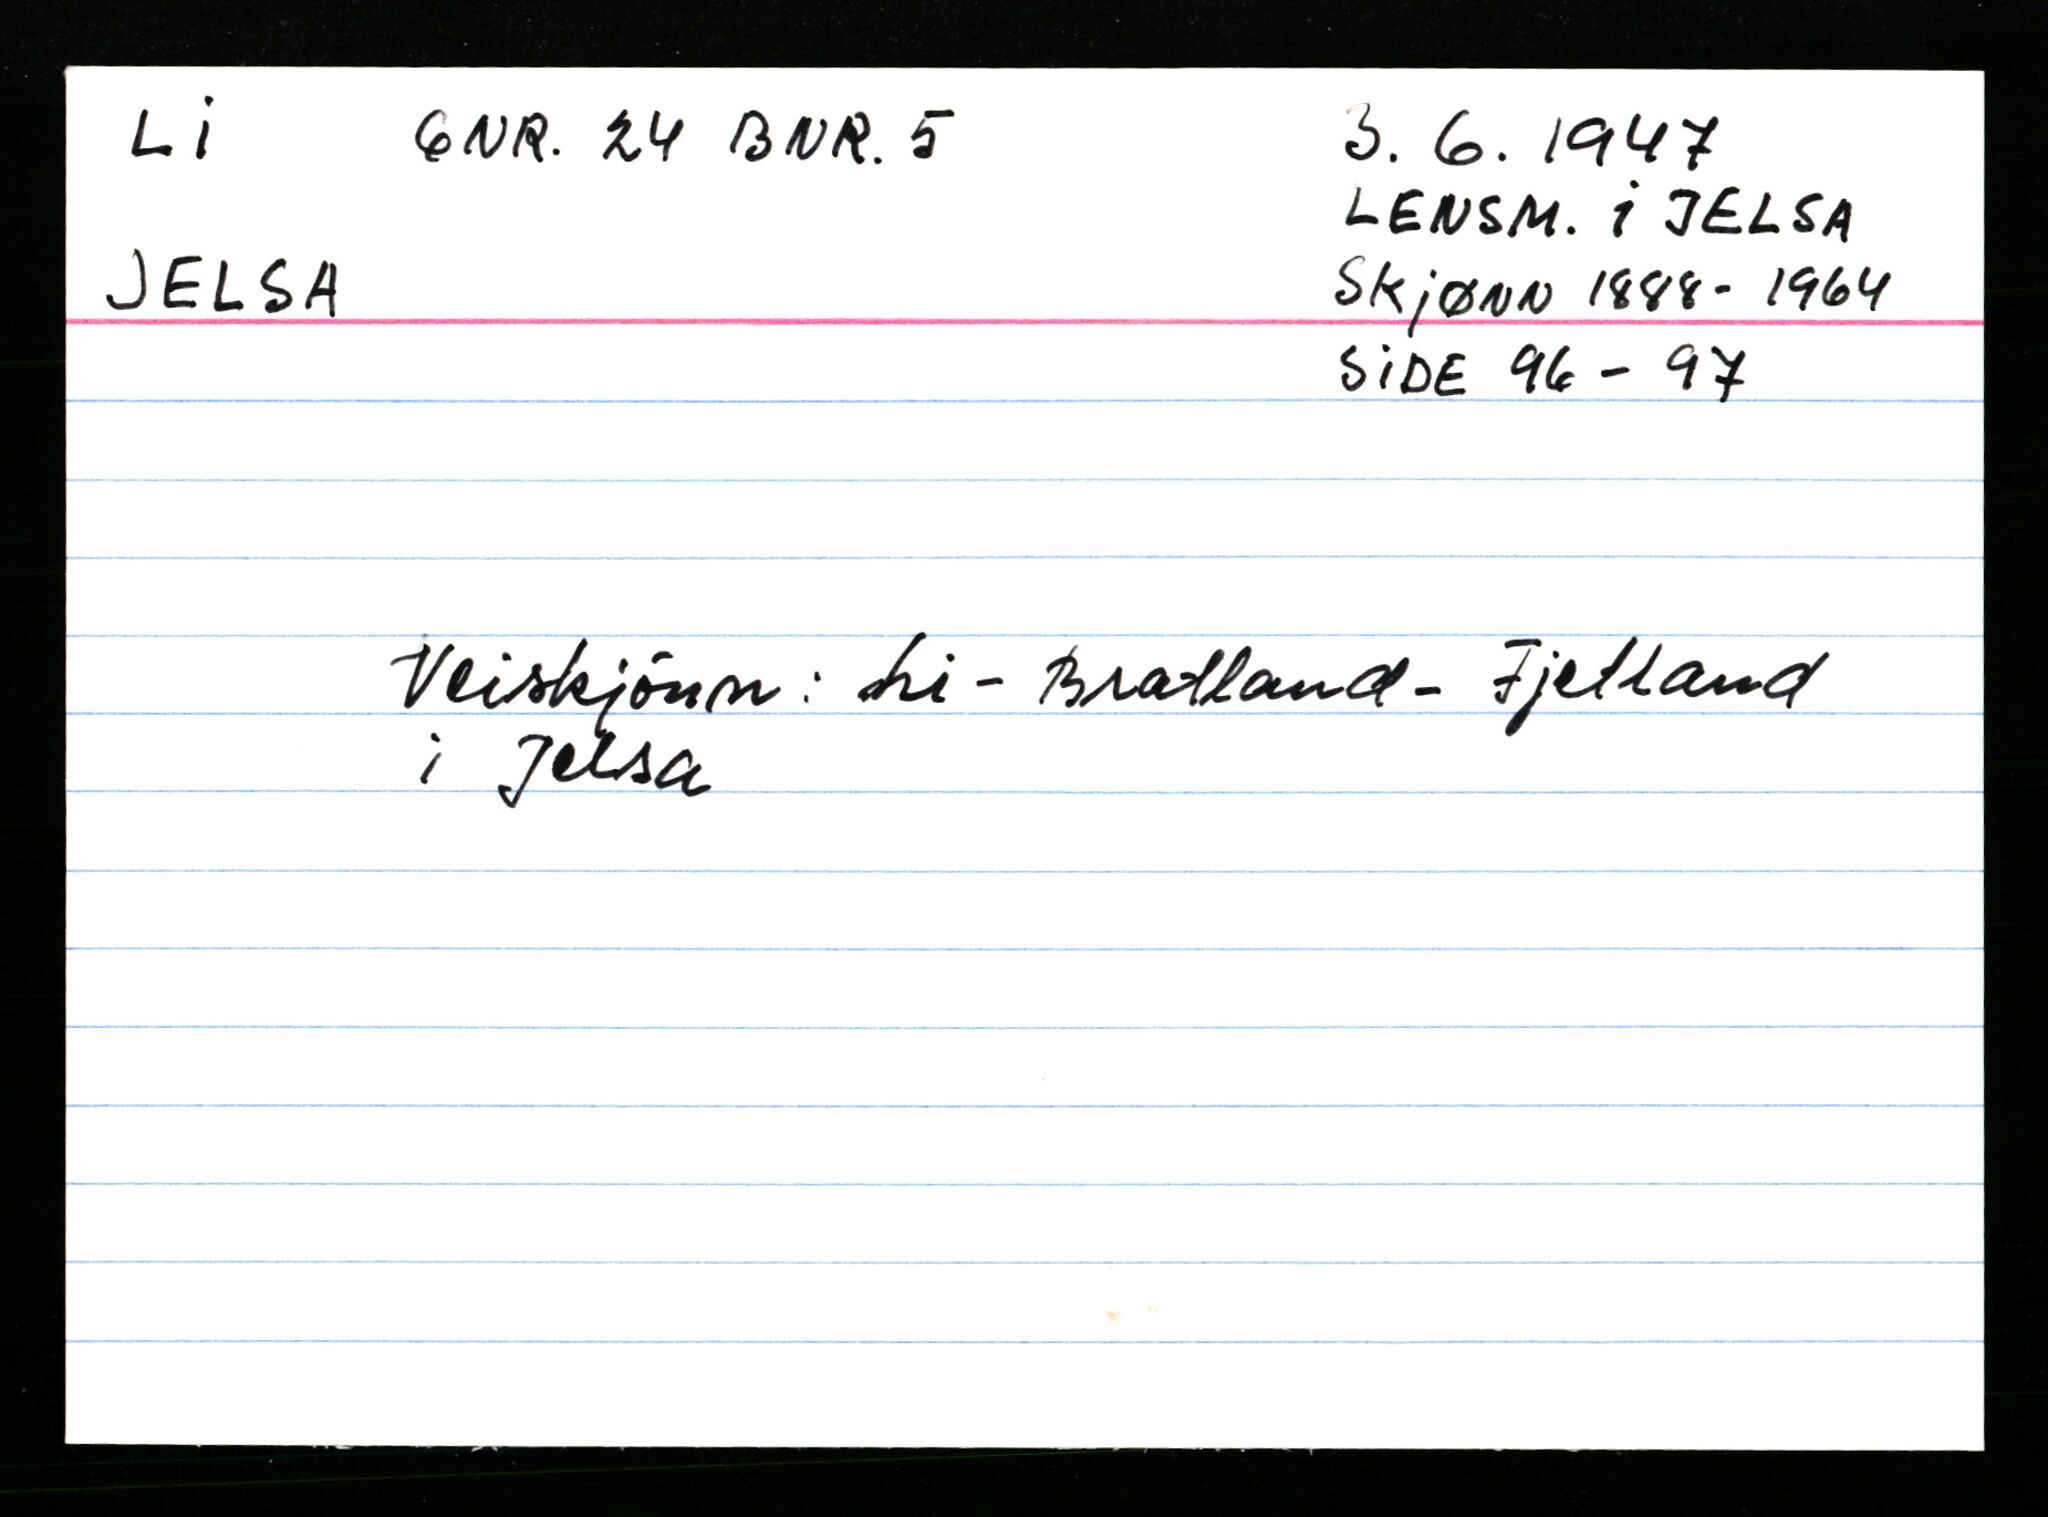 Li GNR. 24 BNR. 5 3. 6. 1947
LENSM. i JELSA
JELSA SKjØNN 1888 - 1964
SiDE 96 - 97
Veiskjönn: Li - Bratland - Fjetland
i Jelsa